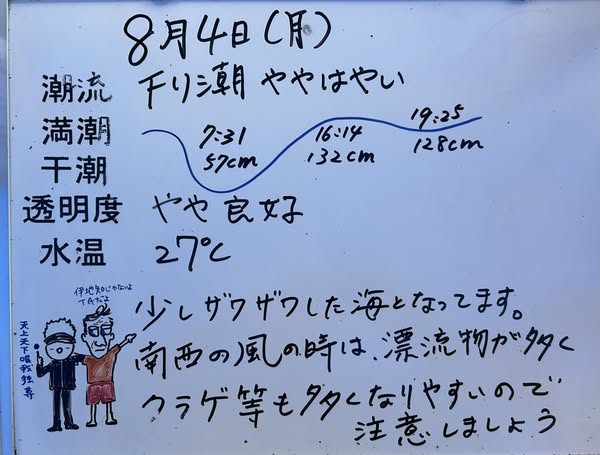 8月4日(月)
潮流 下り潮 ややはやい
満潮
干潮
7:31 16:14 19:25
57cm 132cm 128cm
透明度 やや良好
水温 27℃
伊地知じゃないよ
TAだよ
天上天下唯我独尊
少しザワザワした海となってます。
南西の風の時は、漂流物が多く
クラゲ等も多くなりやすいので
注意しましょう